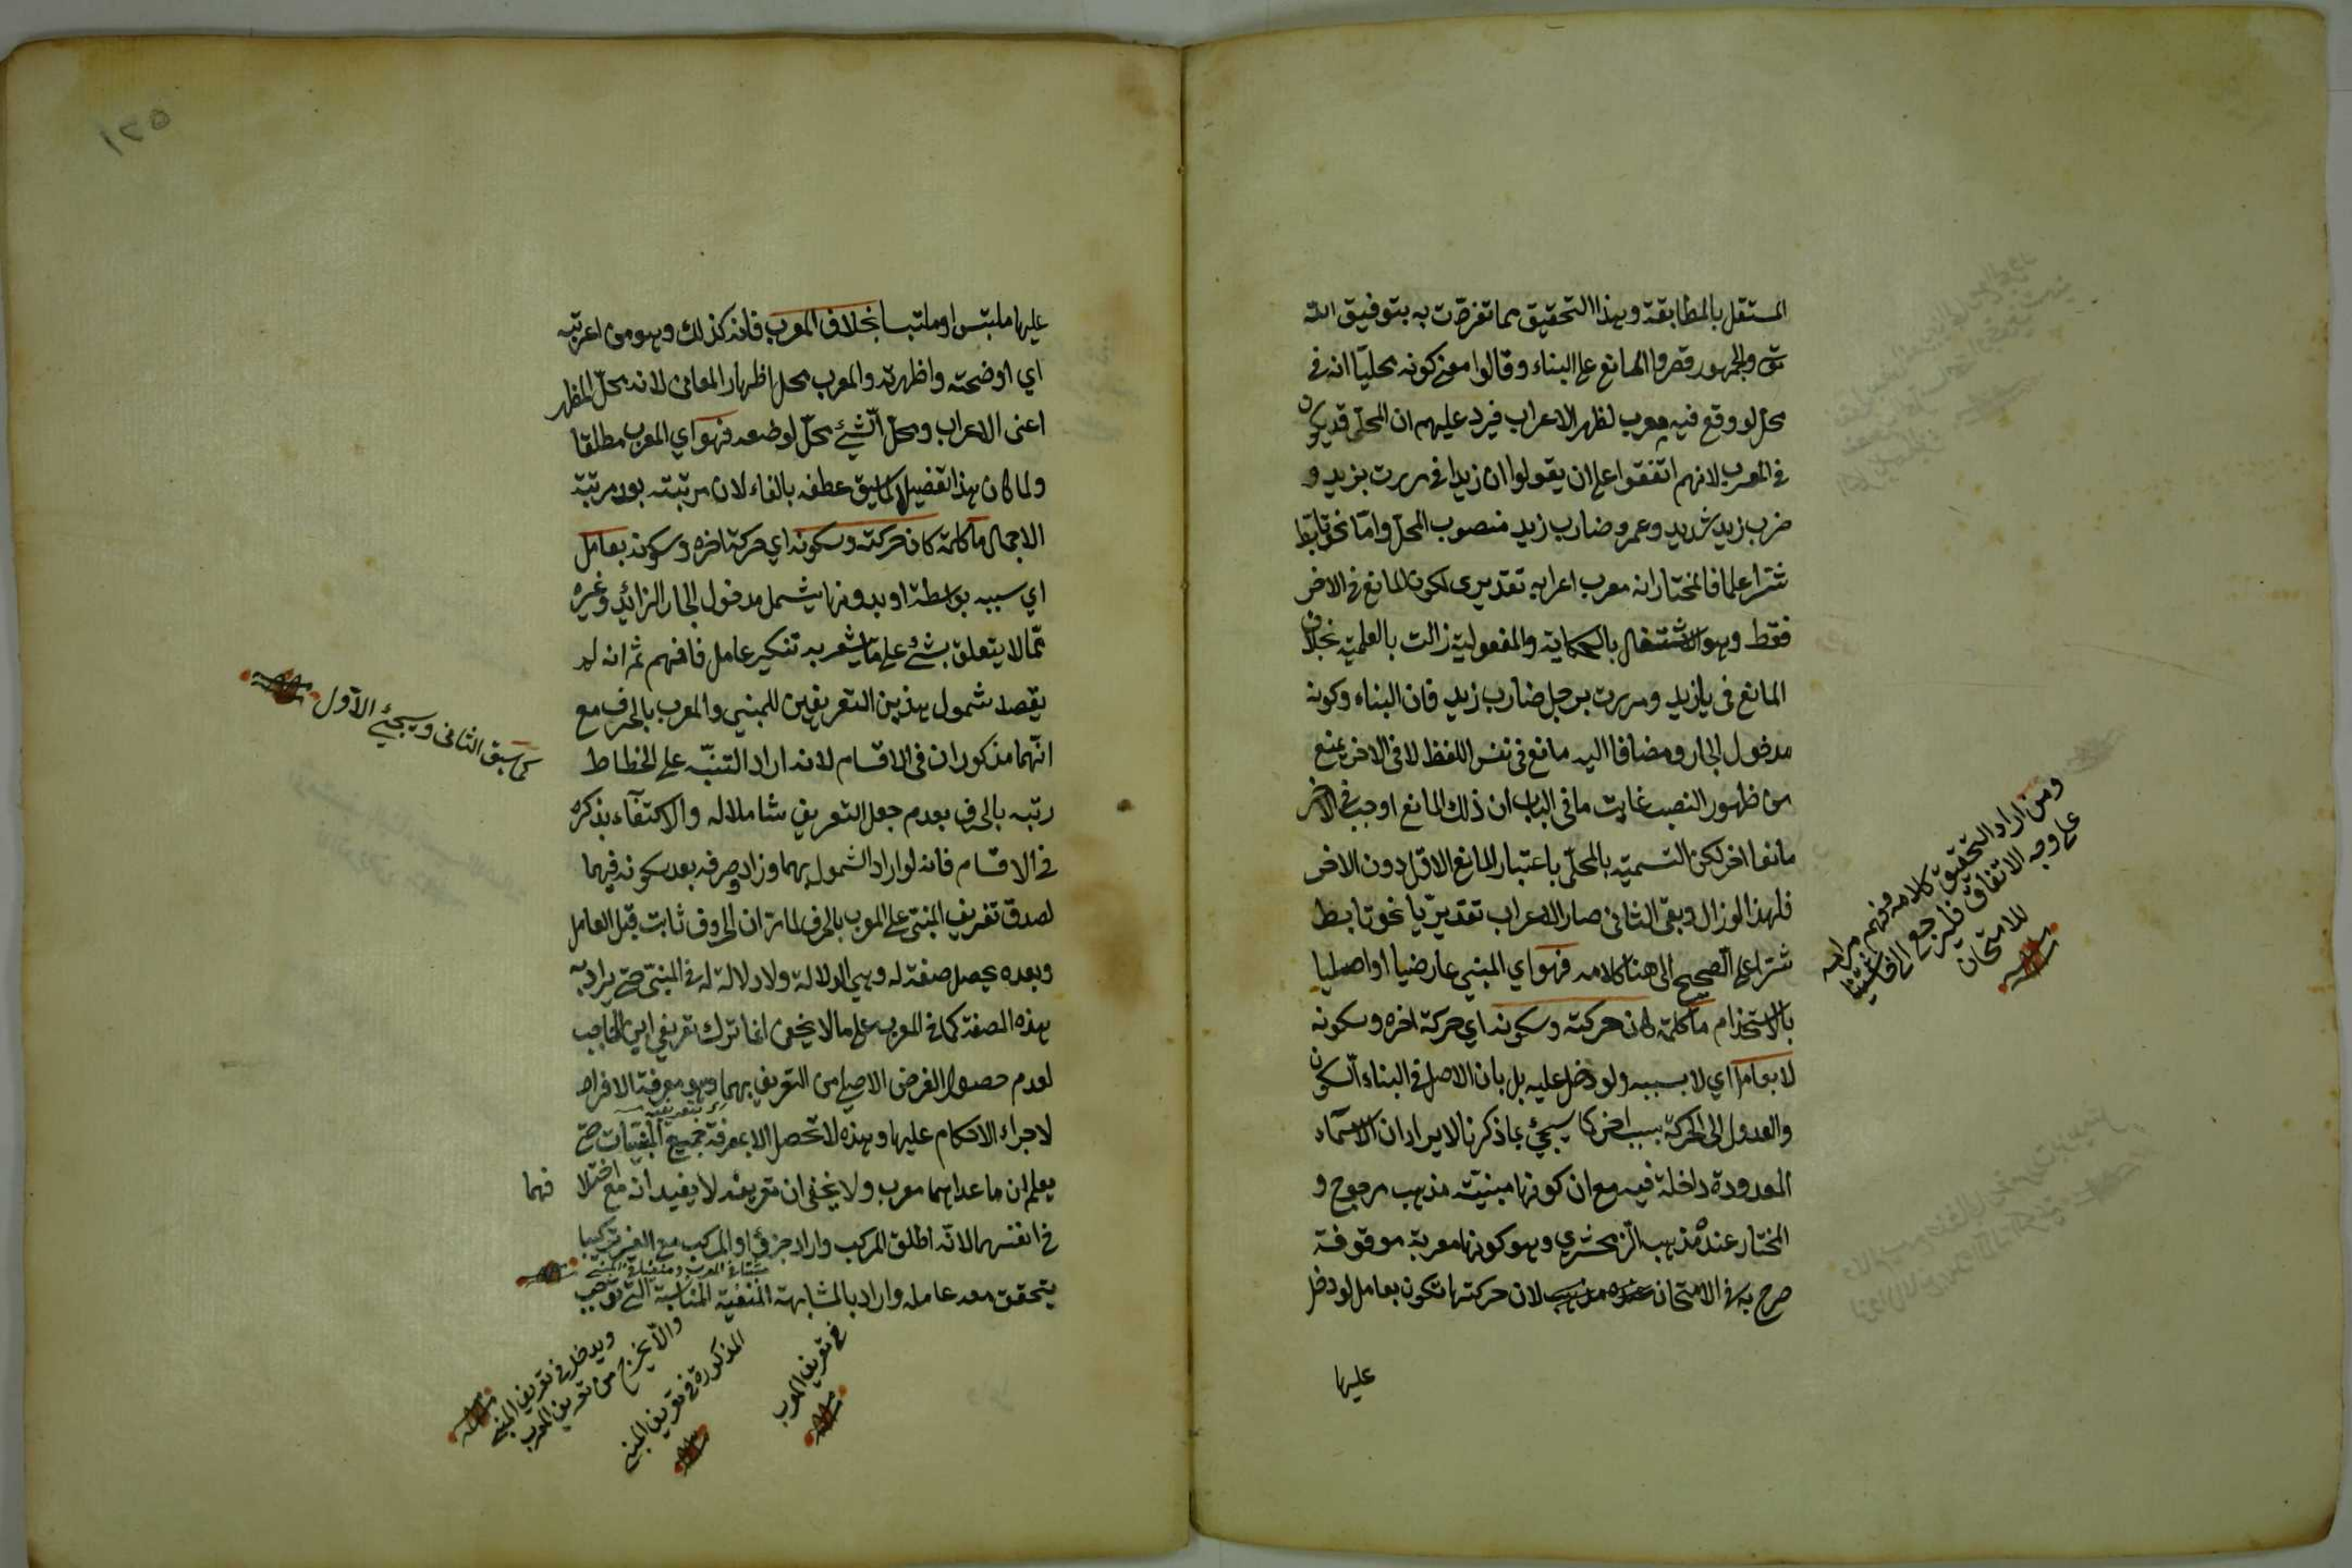 المستقل بالمطابقة وبهذا التحقيق مما تفردت به بتوفيق الله
تعالى والجمهور قصروا المانع على البناء وقالوا معنى كونه محليا انه في
محل لو وقع فيه معرب لظهر الاعراب فيرد عليهم ان المحلى قد يكون
في المعرب لانهم اتفقوا على ان يقولوا ان زيدا في مررت بزيد و
ضرب زيد شديد وعمرو ضارب زيد منصوب المحل واما نحو تأبط
شرا علما فالمختار انه معرب اعرابه تقديرى لكون المانع في الاخر
فقط وهو الاشتغال بالحكاية والمفعولية زالت بالعلمية بخلاف
المانع في يا زيد ومررت برجل ضارب زيد فان البناء وكونه
مدخول الجار ومضافا اليه مانع في نفس اللفظ لا في الاخر يمنع
من ظهور النصب غاية ما في الباب ان ذلك المانع اوجب في الاخر
مانعا اخر لكن التسمية بالمحلى باعتبار المانع الاول دون الاخر
فلهذا لو زال وبقى الثانى صار الاعراب تقديريا نحو تابط
شرا على الصحيح الى هنا كلامه فهو اي المبني عارضيا او اصليا
بالاستخدام ما كلمة كان حركته وسكونه اي حركة اخره وسكونه
لا بعامل اي لا بسببه ولو دخل عليه بل بان الاصل في البناء السكون
والعدول الى الحركة بسبب اخر كما سيجئ بما ذكرنا لا يراد ان الاسماء
المعدودة داخلة فيه مع ان كونها مبنية مذهب مرجوح و
المختار عنده مذهب الزمخشري وهو كونها معربة موقوفة
صرح به في الامتحان لان حركتها تكون بعامل لو دخل
عليها
ومن اراد التحقيق كلامه وفهم مرامه
على وجه الاتفاق فليرجع الى حاشيتنا
للامتحان
١٢٥
عليها ملتبس او ملتبسا بخلاف المعرب فانه كذلك وهو من اعربته
اي اوضحته واظهرته والمعرب محل اظهار المعانى لانه محل المظهر
اعنى الاعراب ومحل الشئ محل لوضعه فهو اي المعرب مطلقا
ولما كان هذا تفصيلا لما سبق عطفه بالفاء لان مرتبته بعد مرتبة
الاجمال ما كلمة كان حركته وسكونه اي حركة اخره وسكونه بعامل
اي سببه بواسطة او بدونها يشمل مدخول الجار الزائد وغيره
مما لا يتعلق بشئ على ما يشعر به تنكير عامل فافهم ثم انه لم
يقصد شمول هذين التعريفين للمبني والمعرب بالحرف مع
انهما مذكوران في الاقسام لانه اراد التنبه على انحطاط
رتبه بالحرف بعدم جعل التعريف شاملا له والاكتفاء بذكره
في الاقسام فانه لو اراد الشمول بهما وزاد وحرفه بعد سكونه فيهما
لصدق تعريف المبنى على المعرب بالحرف لما مر ان الحروف ثابت قبل العامل
وبعده يحصل صفة له وهي الدلالة ولا دلالة له في المبنى حتى يراد به
بهذه الصفة كما في المعرب على ما لا يخفى انما ترك تعريفي ابن الحاجب
لعدم حصول الغرض الاصلي من التعريف بهما وهو معرفة الافراد
لاجراء الاحكام عليها وهذه لا تحصل الا بمعرفة جميع المبنيات حتى
يعلم ان ما عداهما معرب ولا يخفى ان تعريفه لا يفيد انه مع اختلا فهما
في انفسهما لانه اطلق المركب واراد جزؤ او المركب مع الغير تركيبا
يتحقق معه عامله واراد بالمشابهة المنفية المناسبة التي توجب
كما سبق الثانى وسيجئ الاول
ويدخل في تعريف المبني
والا يخرج من تعريف المعرب
المذكورة في تعريف المبني
في تعريف المعرب